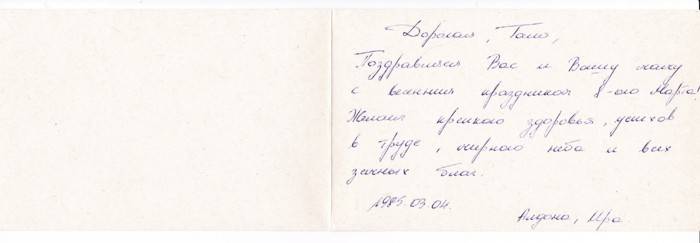 Дорогая, Таня,
Поздравляем Вас и Вашу маму
с весенним праздником 8-ого Марта!
Желаем крепкого здоровья, успехов
в труде, мирного неба и всех
земных благ.
1985.03.04.
Алдона, Ира.